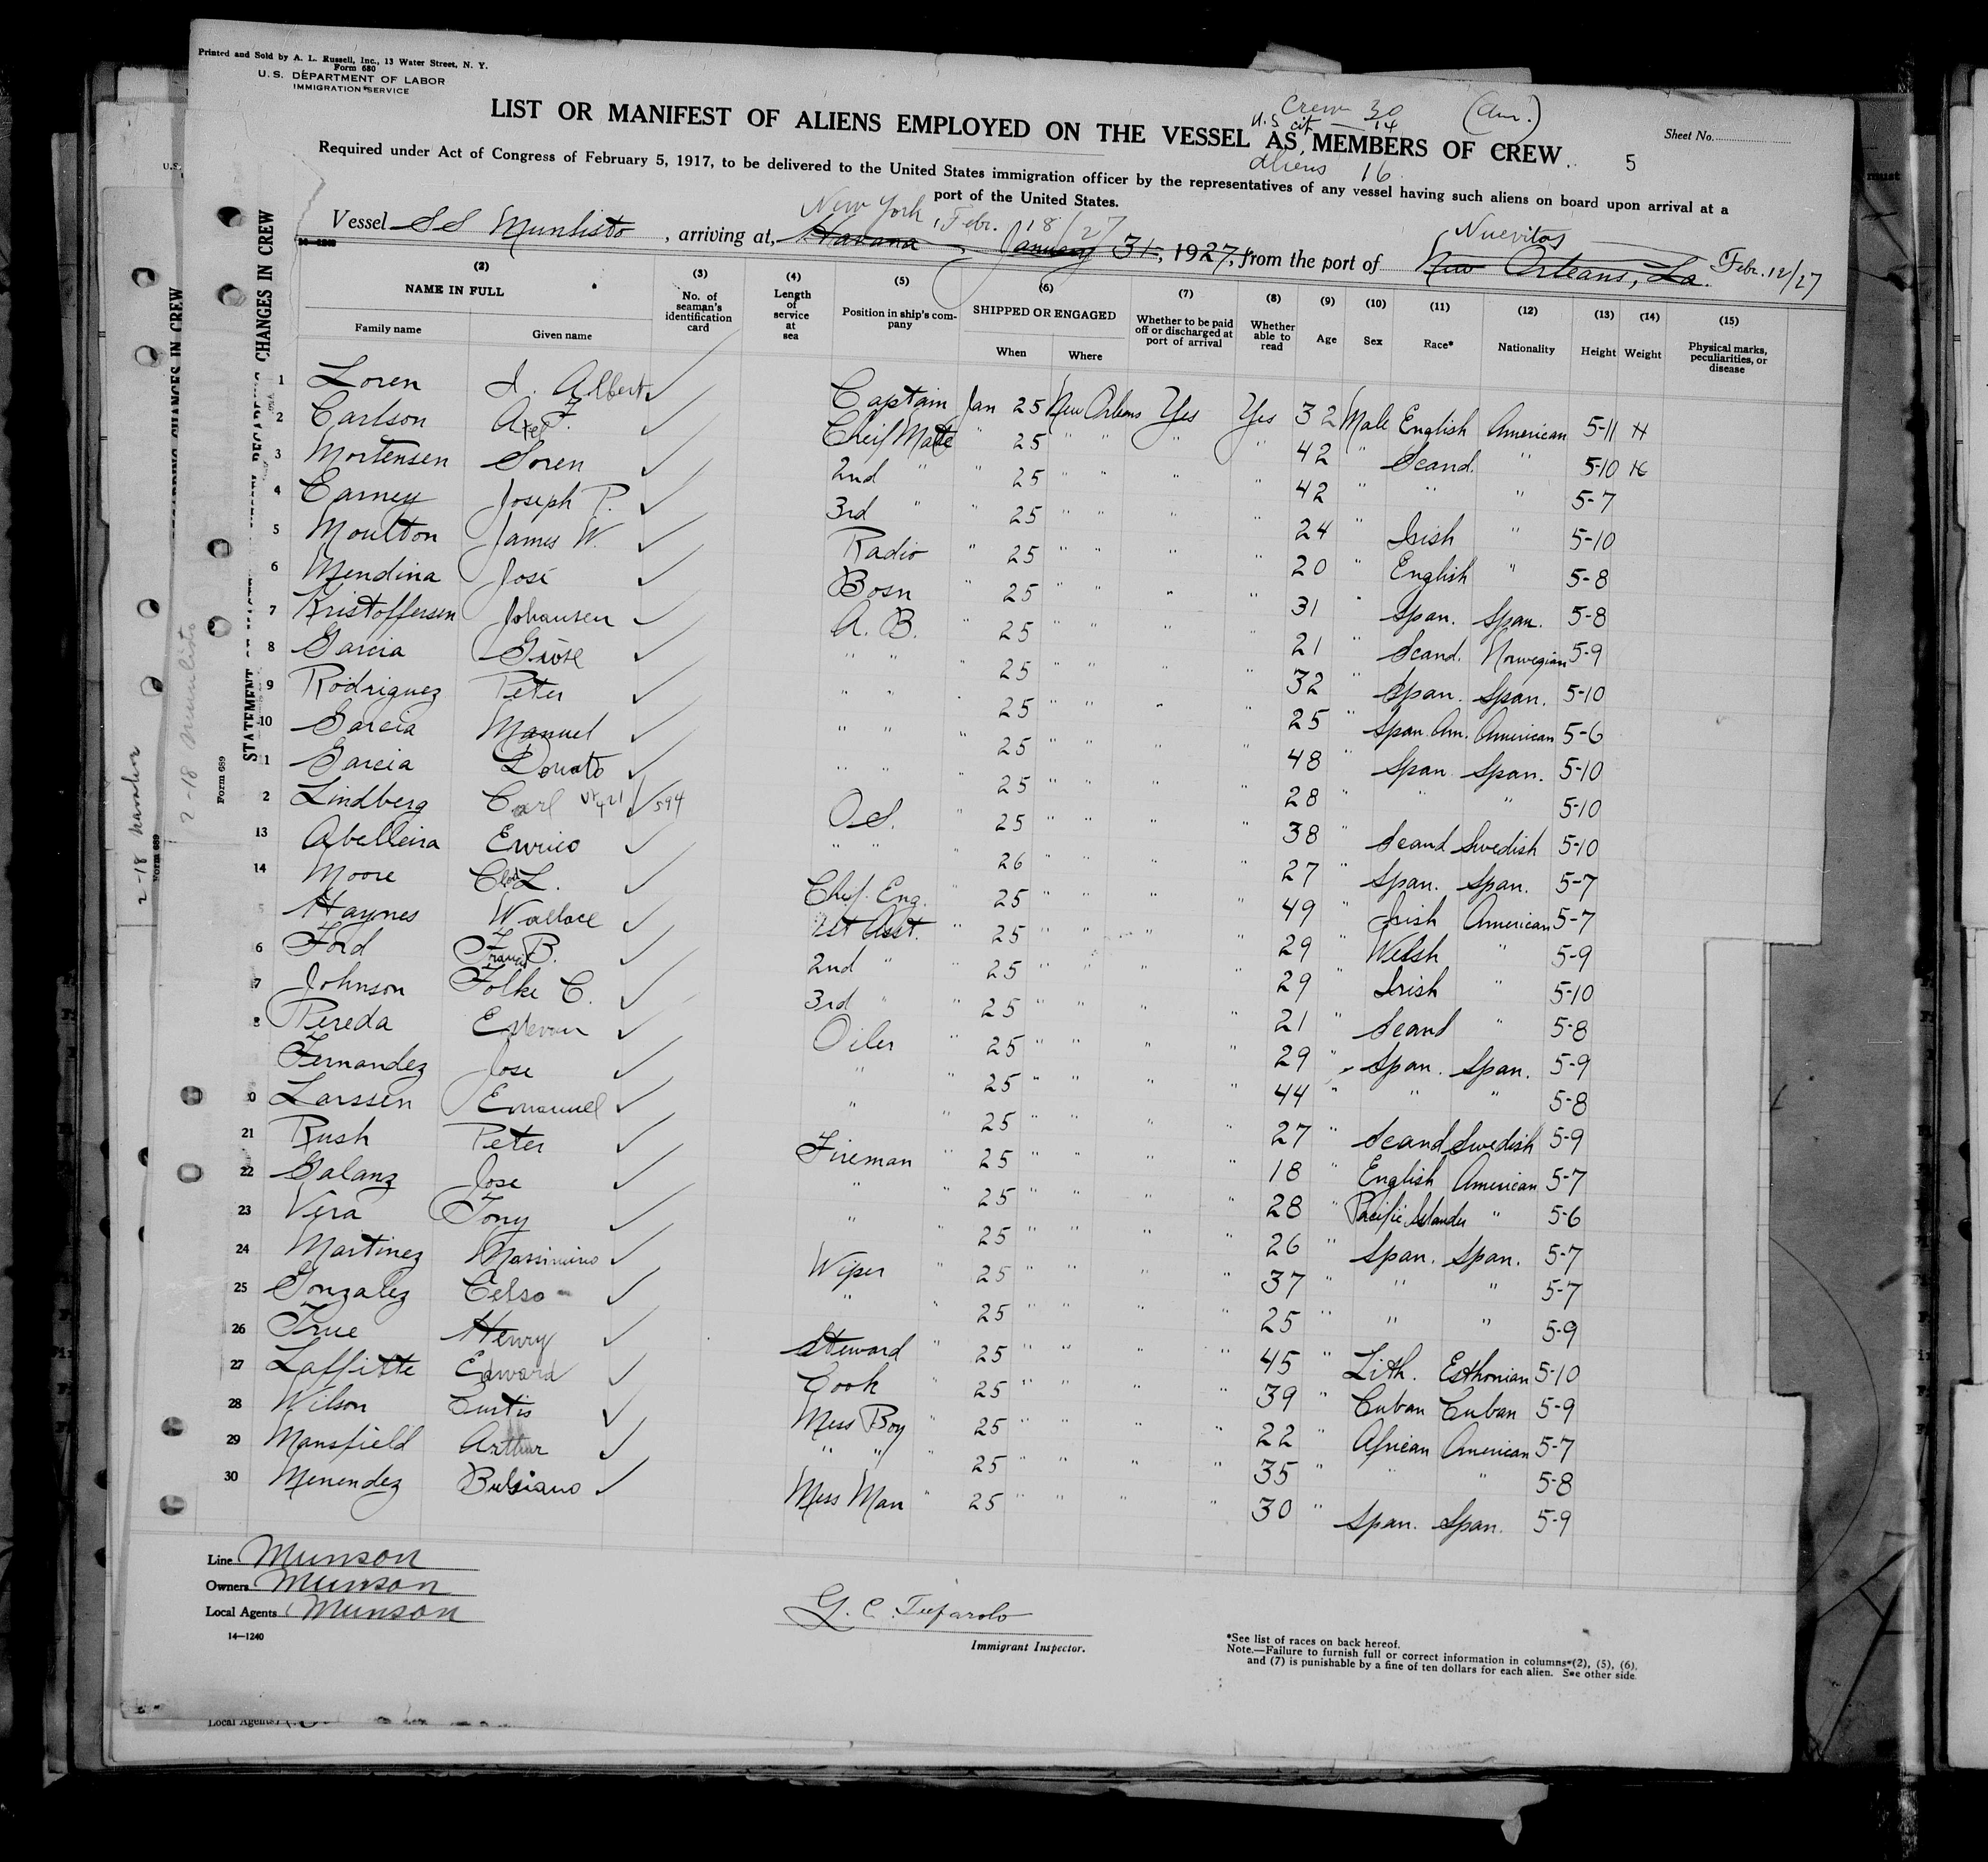 Printed and Sold by A. L. Russell, Inc., 13 Water Street, N. Y.
Form 680
U. S. DEPARTMENT OF LABOR
IMMIGRATION SERVICE
Crew 30 (Am.)
U.S. cit — 14
aliens 16
LIST OR MANIFEST OF ALIENS EMPLOYED ON THE VESSEL AS MEMBERS OF CREW
Sheet No.
5
Required under Act of Congress of February 5, 1917, to be delivered to the United States immigration officer by the representatives of any vessel having such aliens on board upon arrival at a
port of the United States.
New York, Febr. 18/27 Nuevitas
Vessel SS Munlisto, arriving at, Havana, January 31, 1927, from the port of New Orleans, La. Febr. 12/27
(2) (3) (4) (5) (6) (7) (8) (9) (10) (11) (12) (13) (14) (15)
NAME IN FULL No. of seaman's identification card Length of service at sea Position in ship's company SHIPPED OR ENGAGED Whether to be paid off or discharged at port of arrival Whether able to read Age Sex Race* Nationality Height Weight Physical marks, peculiarities, or disease
Family name Given name When Where
1 Loren J. Albert ✓ Captain Jan 25 New Orleans Yes Yes 32 Male English American 5-11
2 Carlson Axel F. ✓ Cheif Mate " 25 " " " " 42 " Scand. " 5-10
3 Mortensen Soren ✓ 2nd " " 25 " " " " 42 " " " 5-7
4 Carney Joseph P. ✓ 3rd " " 25 " " " " 24 " Irish " 5-10
5 Moulton James W. ✓ Radio " 25 " " " " 20 " English " 5-8
6 Mendina José ✓ Bosn " 25 " " " " 31 " Span. Span. 5-8
7 Kristoffersen Johansen ✓ A. B. " 25 " " " " 21 " Scand. Norwegian 5-9
8 Garcia ✓ " " " 25 " " " " 32 " Span. Span. 5-10
9 Rodriguez Peter ✓ " " " 25 " " " " 25 " Span. Am. American 5-6
10 Garcia Manuel ✓ " " " 25 " " " " 48 " Span Span. 5-10
1 Garcia Donato ✓ " " " 25 " " " " 28 " " " 5-10
2 Lindberg Carl ✓ 594 O.S. " 25 " " " " 38 " Scand Swedish 5-10
13 Abelleira Enrico ✓ " " 26 " " " " 27 " Span. Span. 5-7
14 Moore L. ✓ Chif. Eng. " 25 " " " " 49 " Irish American 5-7
5 Haynes Wallace ✓ 1st Asst. " 25 " " " " 29 " Welsh " 5-9
6 Ford Francis B. ✓ 2nd " " 25 " " " " 29 " Irish " 5-10
7 Johnson Folke C. ✓ 3rd " " 25 " " " " 21 " Scand " 5-8
8 Pereda Estevan ✓ Oiler " 25 " " " " 29 " Span. Span. 5-9
Fernandez Jose ✓ " " 25 " " " " 44 " " " 5-8
20 Larssen Emanuel ✓ " " 25 " " " " 27 " Scand Swedish 5-9
21 Rush Peter ✓ Fireman " 25 " " " " 18 " English American 5-7
22 Galanz Jose ✓ " " 25 " " " " 28 " Pacific Islander " 5-6
23 Vera Tony ✓ " " 25 " " " " 26 " Span. Span. 5-7
24 Martinez Massimino ✓ Wiper " 25 " " " " 37 " " " 5-7
25 Gonzalez Celso ✓ " " 25 " " " " 25 " " " 5-9
26 True Henry ✓ Steward " 25 " " " " 45 " Lith. Esthonian 5-10
27 Laffitte Edward ✓ Cook " 25 " " " " 39 " Cuban Cuban 5-9
28 Wilson Curtis ✓ Mess Boy " 25 " " " " 22 " African American 5-7
29 Mansfield Arthur ✓ " " " 25 " " " " 35 " " " 5-8
30 Menendez ✓ Mess Man " 25 " " " " 30 " Span. Span. 5-9
Line Munson
Owners Munson
Local Agents Munson
14—1240
G. C.
Immigrant Inspector.
*See list of races on back hereof.
Note.—Failure to furnish full or correct information in columns (2), (5), (6),
and (7) is punishable by a fine of ten dollars for each alien. See other side.
Local Agents
CHANGES IN CREW
STATEMENT
Form 689
2-18 Munlisto
2-18
Form 689